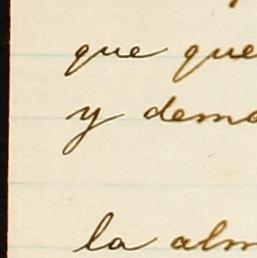 que que
y demo
la alm